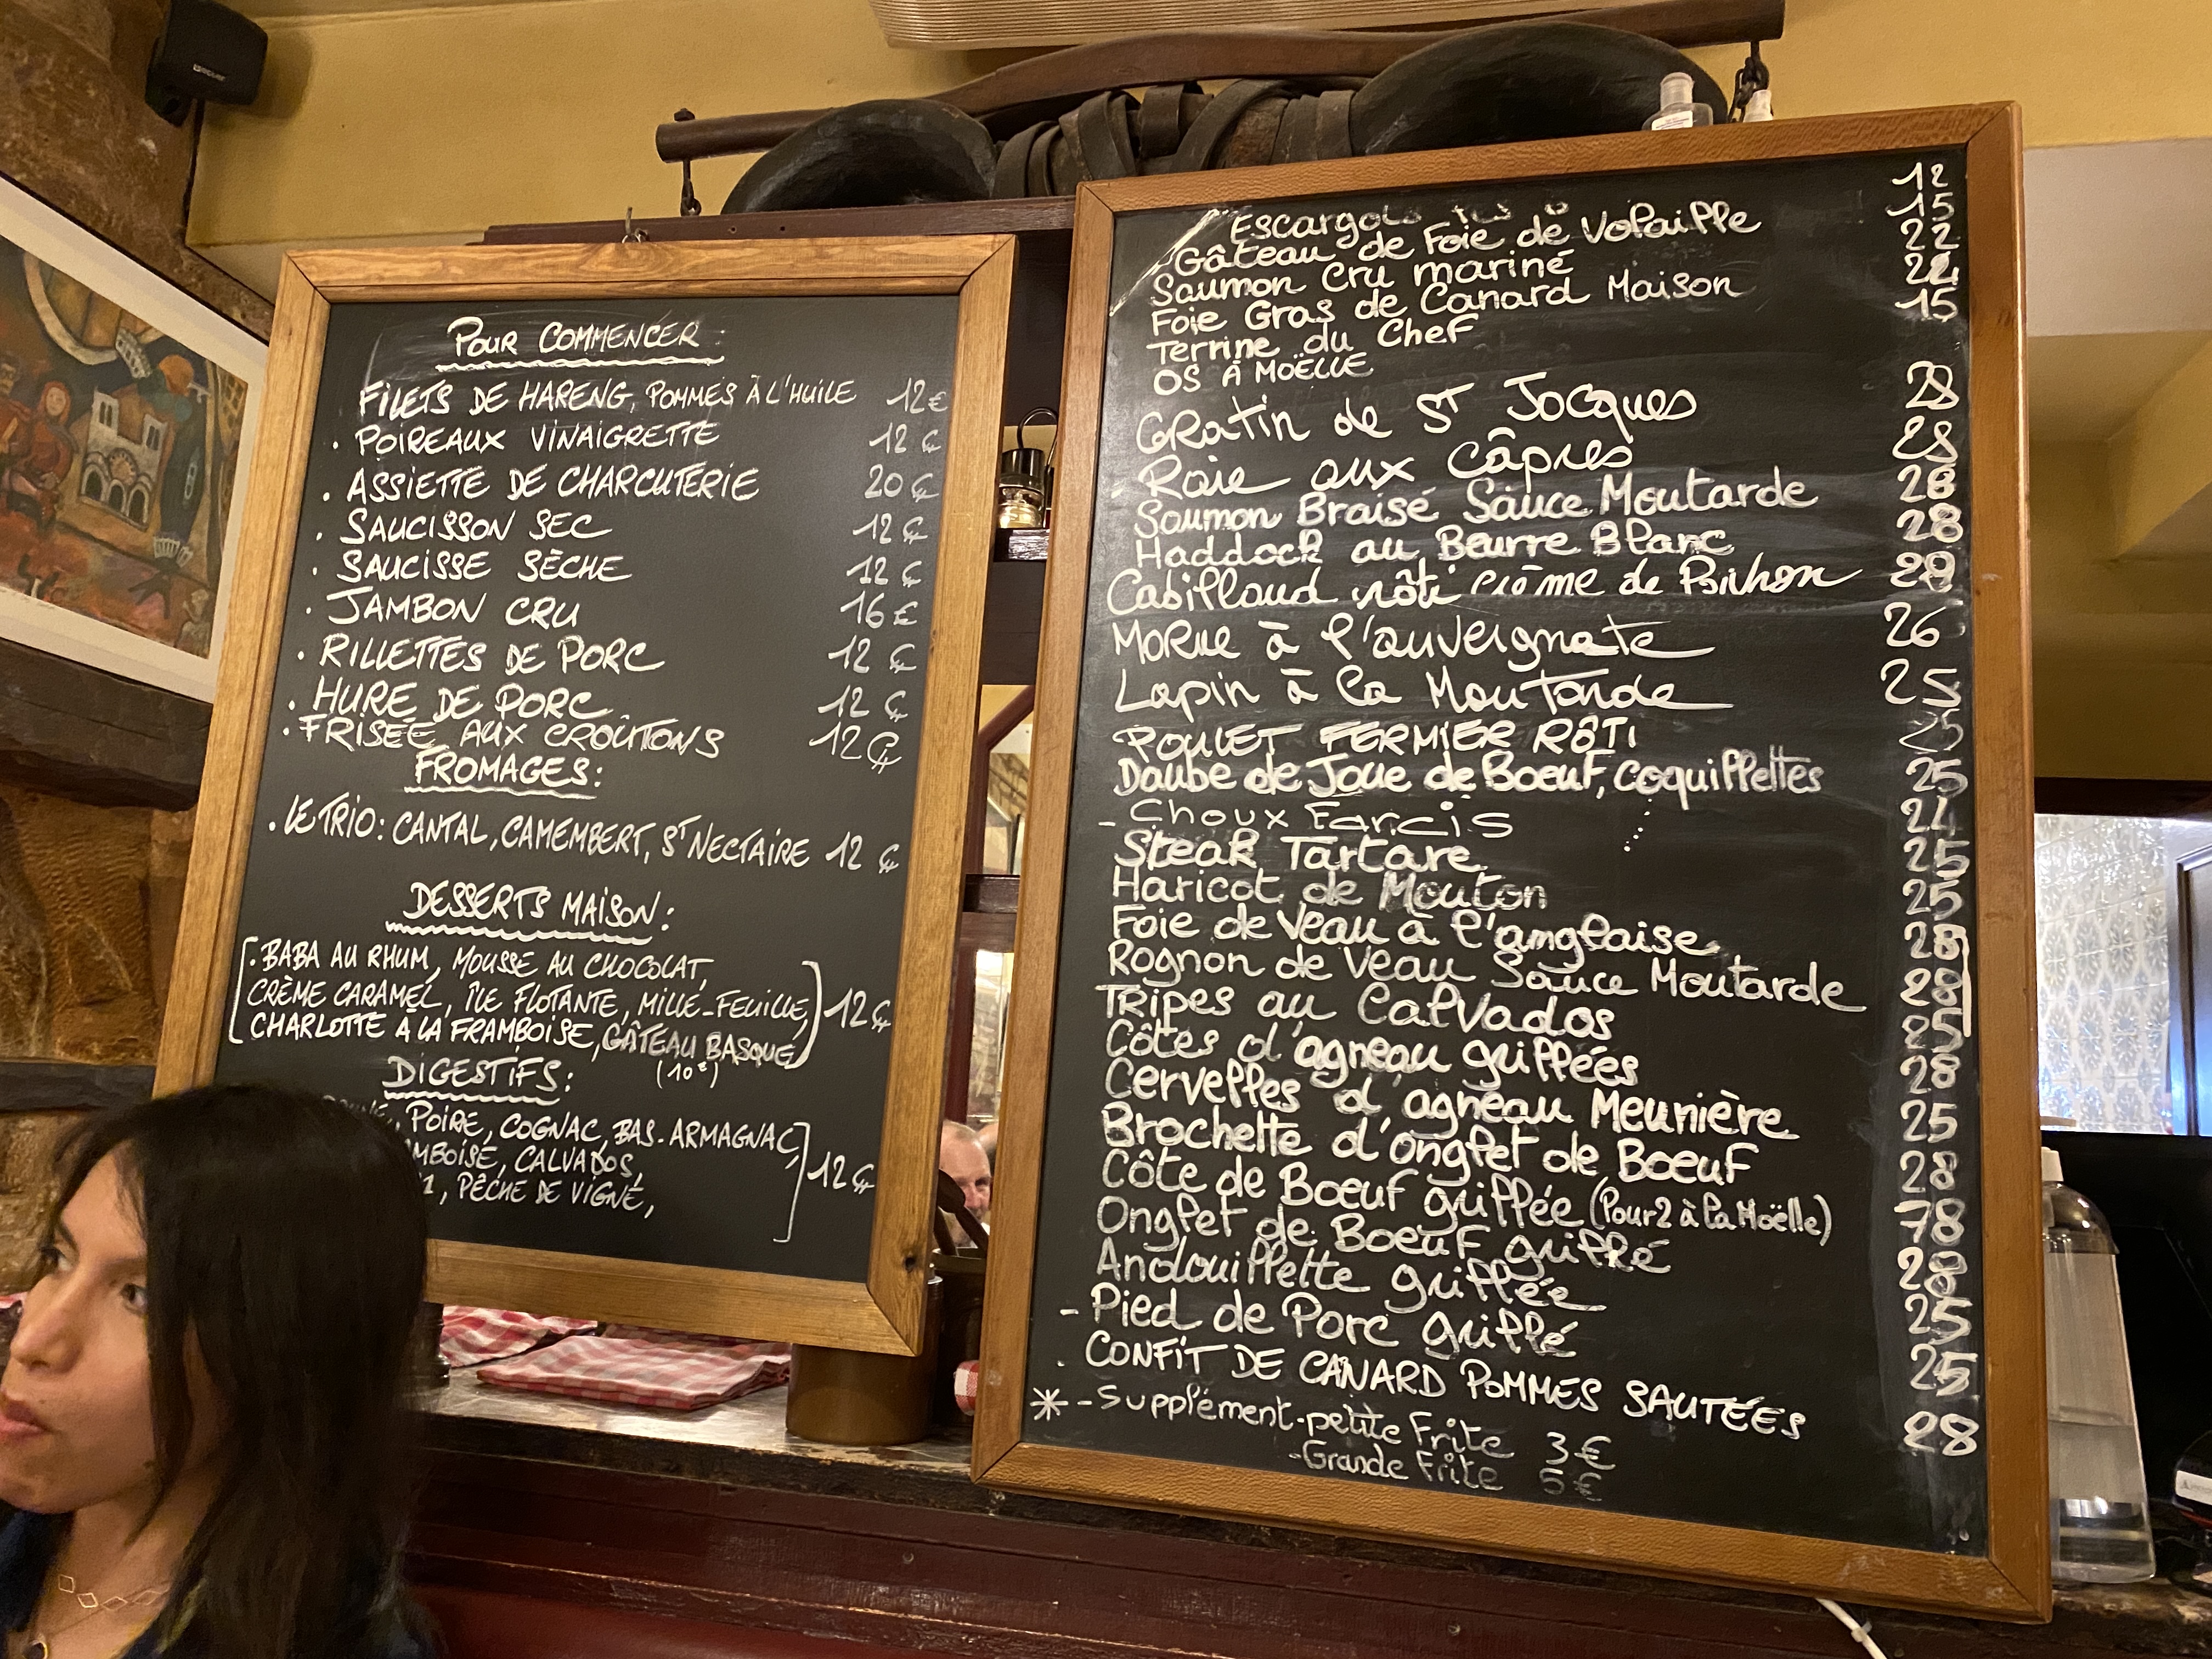 POUR COMMENCER :
FILETS DE HARENG, POMMES À L'HUILE 12€
. POIREAUX VINAIGRETTE 12 €
. ASSIETTE DE CHARCUTERIE 20 €
. SAUCISSON SEC 12 €
. SAUCISSE SÈCHE 12 €
. JAMBON CRU 16 €
. RILLETTES DE PORC 12 €
. HURE DE PORC 12 €
. FRISÉE AUX CROÛTONS 12 €
FROMAGES :
. LE TRIO : CANTAL, CAMEMBERT, ST NECTAIRE 12 €
DESSERTS MAISON :
. BABA AU RHUM, MOUSSE AU CHOCOLAT,
CRÈME CARAMEL, ÎLE FLOTANTE, MILLE-FEUILLE, 12 €
CHARLOTTE À LA FRAMBOISE, GÂTEAU BASQUE
(10€)
DIGESTIFS :
POIRE, COGNAC, BAS-ARMAGNAC,
MBOISE, CALVADOS, 12 €
, PÊCHE DE VIGNE,
12
Gâteau de Foie de Volaille 15
Saumon Cru mariné 22
Foie Gras de Canard Maison 22
Terrine du Chef 15
OS À MOËLLE
Gratin de ST Jacques 28
. Raie aux câpres 28
Saumon Braisé Sauce Moutarde 28
Haddock au Beurre Blanc 28
Cabillaud rôti crème de 28
Morue à l'auvergnate 26
Lapin à la Moutarde 25
POULET FERMIER RÔTI 25
Daube de Joue de Boeuf, coquillettes 25
- Choux Farcis
Steak Tartare 25
Haricot de Mouton 25
Foie de Veau à l'anglaise 28
Rognon de Veau Sauce Moutarde 28
Tripes au Calvados 25
Côtes d'agneau grillées 28
Cervelles d'agneau Meunière 25
Brochette d'onglet de Boeuf 28
Côte de Boeuf grillée (Pour 2 à la Moëlle) 78
Onglet de Boeuf grillé 28
Andouillette grillée 25
- Pied de Porc grillé 25
. CONFIT DE CANARD POMMES SAUTÉES 28
* - Supplément - petite Frite 3 €
- Grande Frite 5 €